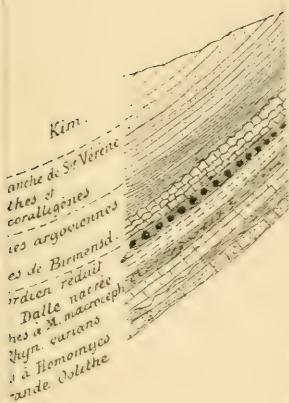 Kim.
anche de Ste Vérène
thes et
coralligènes
ies argoviennes
es de Birmensd.
ordien réduit
Dalle nacrée
hes à M. macroceph.
Rhyn. varians
s à Homomyes
ande Oolithe